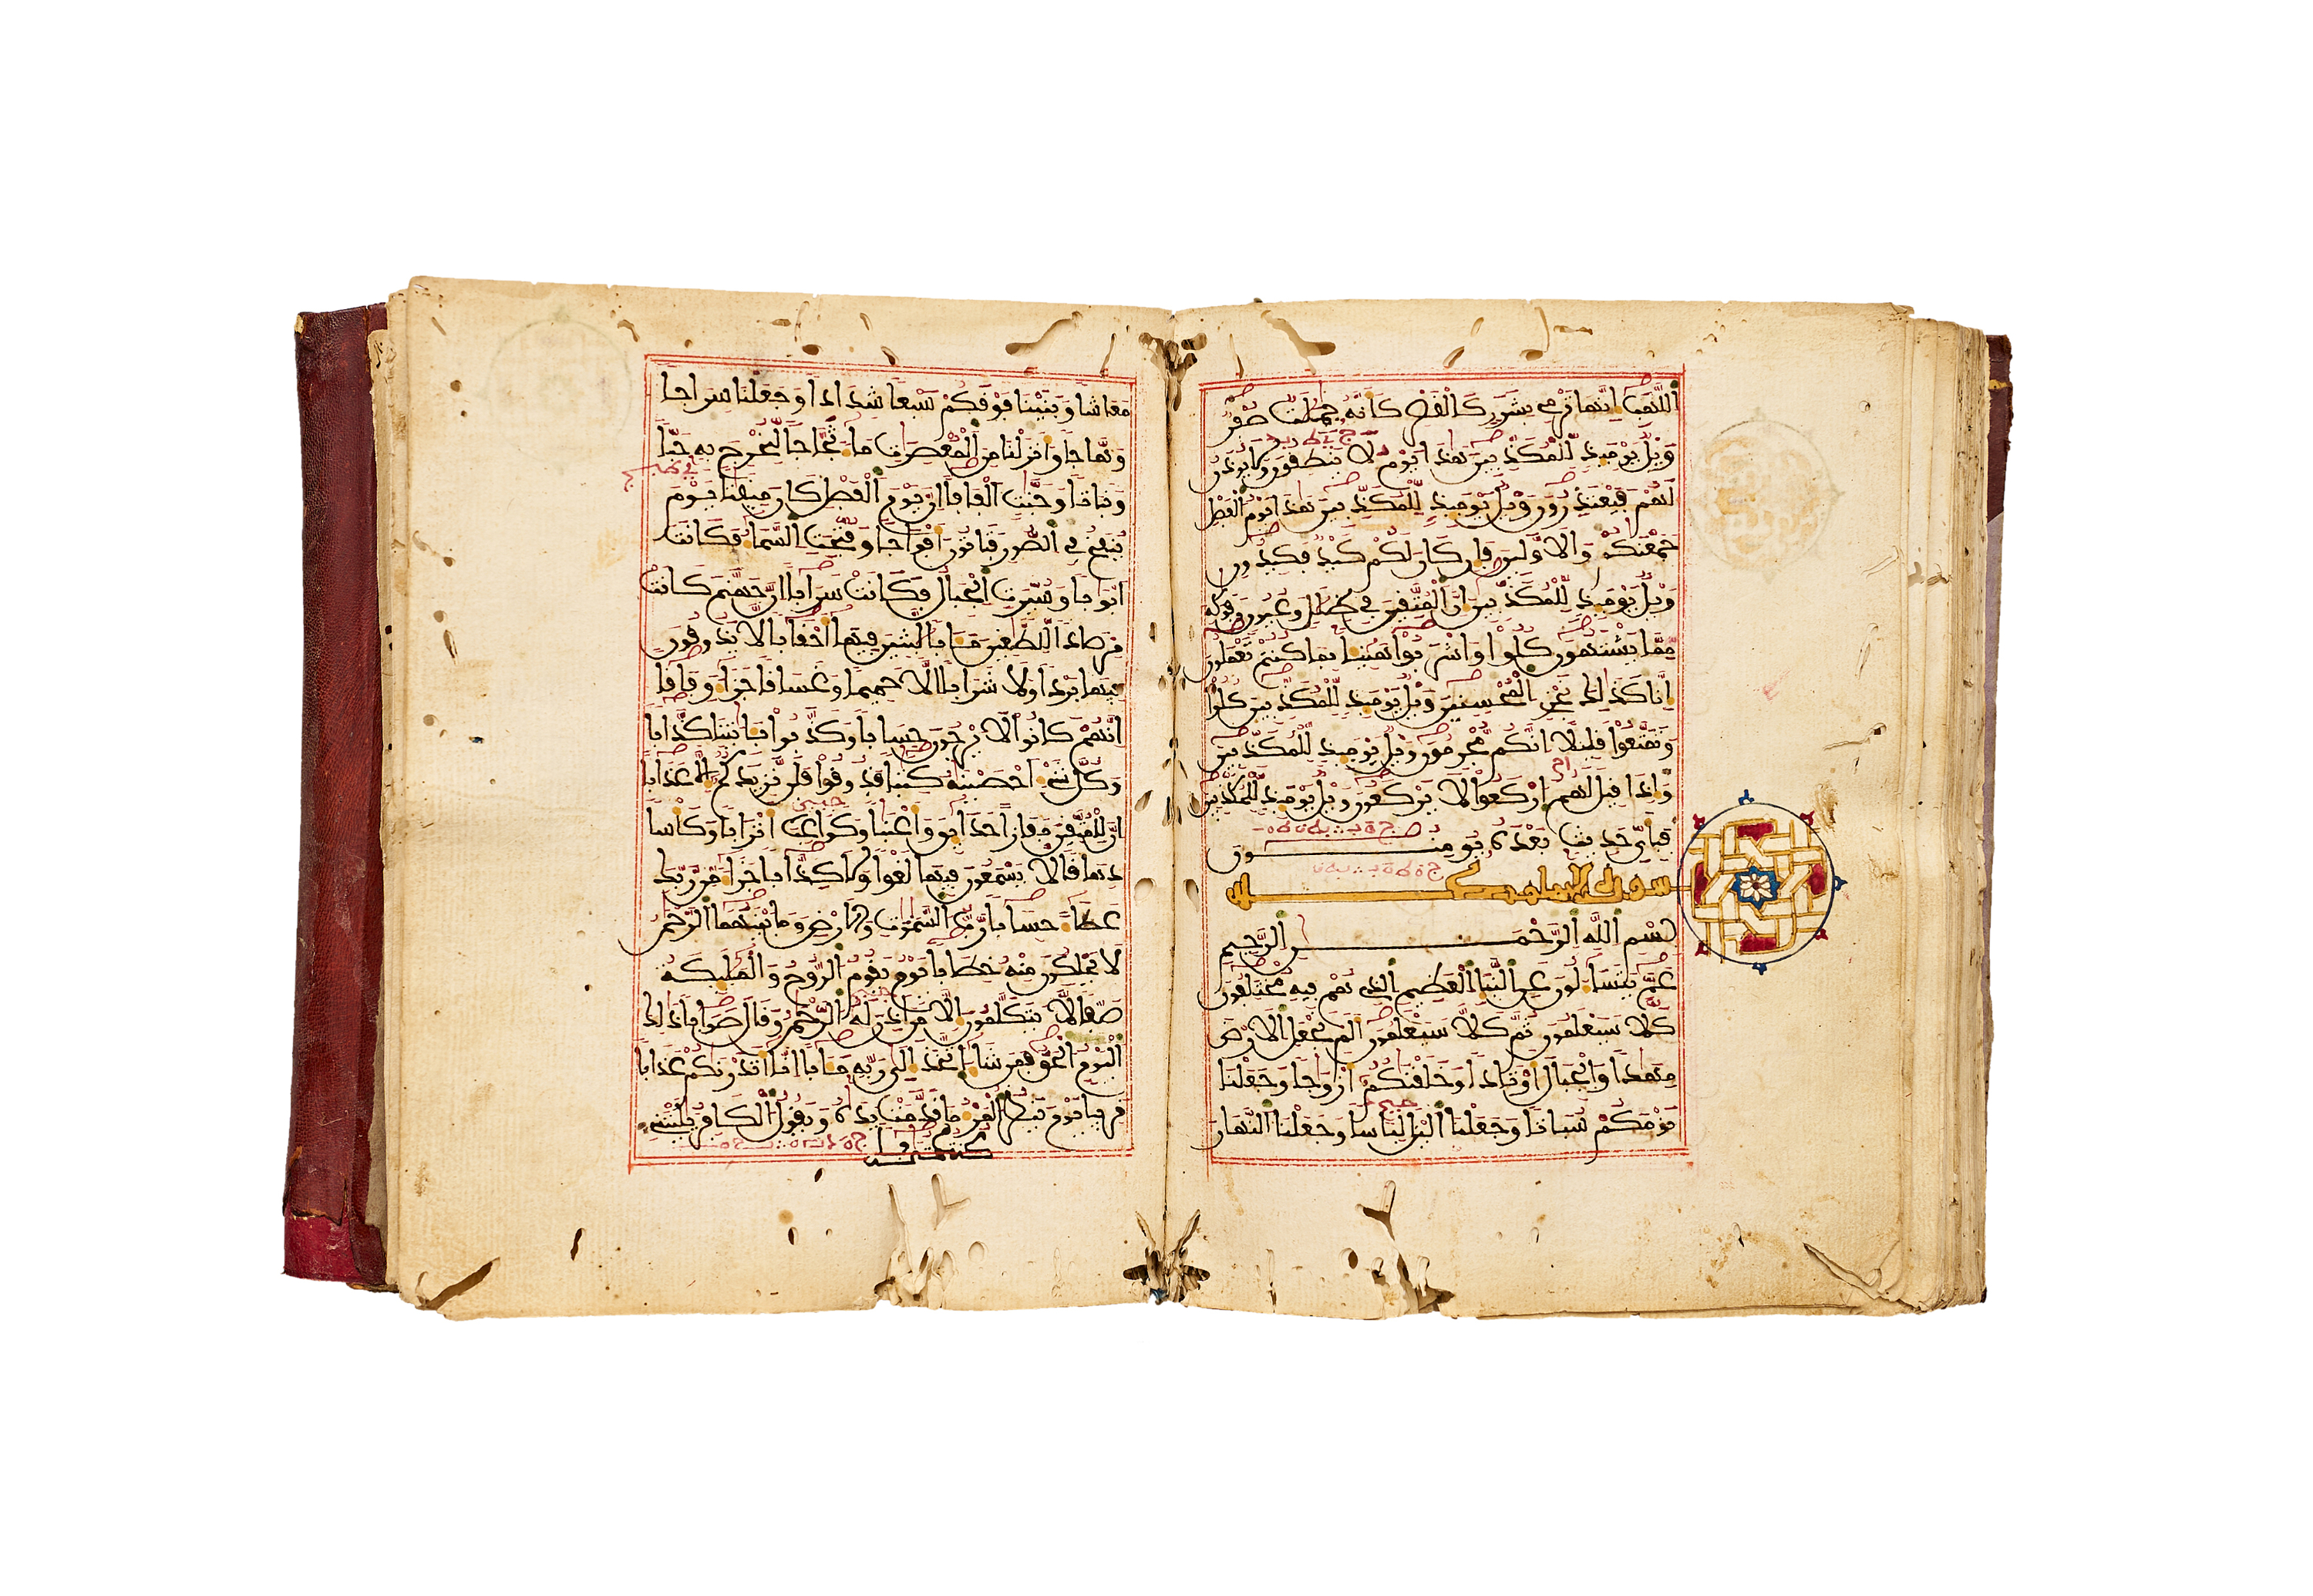 اللَّهَبِ إِنَّهَا تَرْمِي بِشَرَرٍ كَالْقَصْرِ كَأَنَّهُ جِمَٰلَٰتٌ صُفْرٌ
وَيْلٌ يَوْمَئِذٍ لِّلْمُكَذِّبِينَ هَٰذَا يَوْمُ لَا يَنطِقُونَ وَلَا يُوذَنُ
لَهُمْ فَيَعْتَذِرُونَ وَيْلٌ يَوْمَئِذٍ لِّلْمُكَذِّبِينَ هَٰذَا يَوْمُ الْفَصْلِ
جَمَعْنَٰكُمْ وَالَاوَّلِينَ فَإِن كَانَ لَكُمْ كَيْدٌ فَكِيدُونِ
وَيْلٌ يَوْمَئِذٍ لِّلْمُكَذِّبِينَ إِنَّ الْمُتَّقِينَ فِي ظِلَٰلٍ وَعُيُونٍ وَفَوَٰكِهَ
مِمَّا يَشْتَهُونَ كُلُوا وَاشْرَبُوا هَنِيئًا بِمَا كُنتُمْ تَعْمَلُونَ
إِنَّا كَذَٰلِكَ نَجْزِي الْمُحْسِنِينَ وَيْلٌ يَوْمَئِذٍ لِّلْمُكَذِّبِينَ كُلُوا
وَتَمَتَّعُوا قَلِيلًا إِنَّكُم مُّجْرِمُونَ وَيْلٌ يَوْمَئِذٍ لِّلْمُكَذِّبِينَ
وَإِذَا قِيلَ لَهُمُ ارْكَعُوا لَا يَرْكَعُونَ وَيْلٌ يَوْمَئِذٍ لِّلْمُكَذِّبِينَ
فَبِأَيِّ حَدِيثٍ بَعْدَهُ يُومِنُونَ
بِسْمِ اللَّهِ الرَّحْمَٰنِ الرَّحِيمِ
عَمَّ يَتَسَاءَلُونَ عَنِ النَّبَإِ الْعَظِيمِ الَّذِي هُمْ فِيهِ مُخْتَلِفُونَ
كَلَّا سَيَعْلَمُونَ ثُمَّ كَلَّا سَيَعْلَمُونَ أَلَمْ نَجْعَلِ الَارْضَ
مِهَٰدًا وَالْجِبَالَ أَوْتَادًا وَخَلَقْنَٰكُمْ أَزْوَٰجًا وَجَعَلْنَا
نَوْمَكُمْ سُبَاتًا وَجَعَلْنَا الَّيْلَ لِبَاسًا وَجَعَلْنَا النَّهَارَ
مَعَاشًا وَبَنَيْنَا فَوْقَكُمْ سَبْعًا شِدَادًا وَجَعَلْنَا سِرَاجًا
وَهَّاجًا وَأَنزَلْنَا مِنَ الْمُعْصِرَٰتِ مَاءً ثَجَّاجًا لِّنُخْرِجَ بِهِ حَبًّا
وَنَبَاتًا وَجَنَّٰتٍ أَلْفَافًا إِنَّ يَوْمَ الْفَصْلِ كَانَ مِيقَٰتًا يَوْمَ
يُنفَخُ فِي الصُّورِ فَتَاتُونَ أَفْوَاجًا وَفُتِّحَتِ السَّمَاءُ فَكَانَتَ
ابْوَٰبًا وَسُيِّرَتِ الْجِبَالُ فَكَانَتْ سَرَابًا إِنَّ جَهَنَّمَ كَانَتْ
مِرْصَادًا لِّلطَّٰغِينَ مَـَٔابًا لَّٰبِثِينَ فِيهَا أَحْقَابًا لَّا يَذُوقُونَ
فِيهَا بَرْدًا وَلَا شَرَابًا إِلَّا حَمِيمًا وَغَسَاقًا جَزَاءً وِفَاقًا
إِنَّهُمْ كَانُوا لَا يَرْجُونَ حِسَابًا وَكَذَّبُوا بِـَٔايَٰتِنَا كِذَّابًا
وَكُلَّ شَيْءٍ أَحْصَيْنَٰهُ كِتَٰبًا فَذُوقُوا فَلَن نَّزِيدَكُمُ إِلَّا عَذَابًا
إِنَّ لِلْمُتَّقِينَ مَفَازًا حَدَائِقَ وَأَعْنَٰبًا وَكَوَاعِبَ أَتْرَابًا وَكَأْسًا
دِهَاقًا لَّا يَسْمَعُونَ فِيهَا لَغْوًا وَلَا كِذَّابًا جَزَاءً مِّن رَّبِّكَ
عَطَاءً حِسَابًا رَّبُّ السَّمَٰوَٰتِ وَالَارْضِ وَمَا بَيْنَهُمَا الرَّحْمَٰنُ
لَا يَمْلِكُونَ مِنْهُ خِطَابًا يَوْمَ يَقُومُ الرُّوحُ وَالْمَلَٰئِكَةُ
صَفًّا لَّا يَتَكَلَّمُونَ إِلَّا مَنَ اذِنَ لَهُ الرَّحْمَٰنُ وَقَالَ صَوَابًا ذَٰلِكَ
الْيَوْمُ الْحَقُّ فَمَن شَاءَ اتَّخَذَ إِلَىٰ رَبِّهِ مَـَٔابًا إِنَّا أَنذَرْنَٰكُمْ عَذَابًا
قَرِيبًا يَوْمَ يَنظُرُ الْمَرْءُ مَا قَدَّمَتْ يَدَاهُ وَيَقُولُ الْكَافِرُ يَٰلَيْتَنِي
كُنتُ تُرَٰبًا